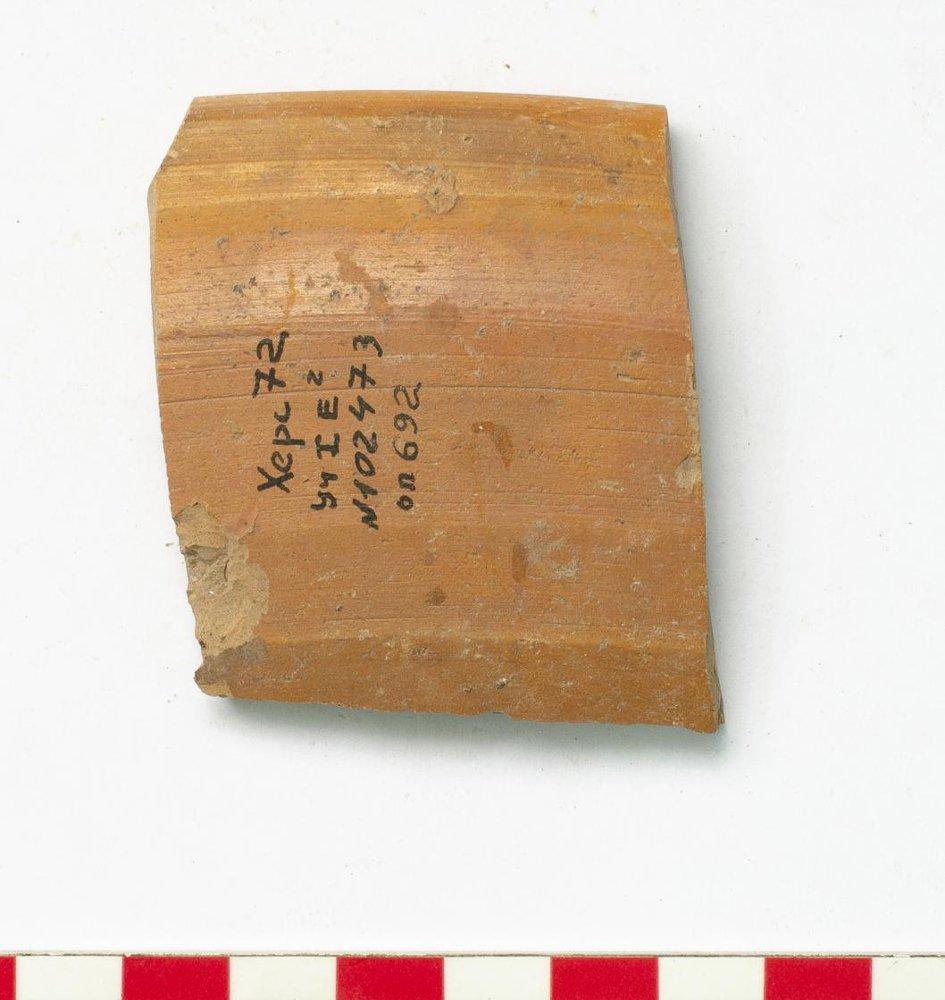 Херс 72
уч I E 2
N102473
оп692